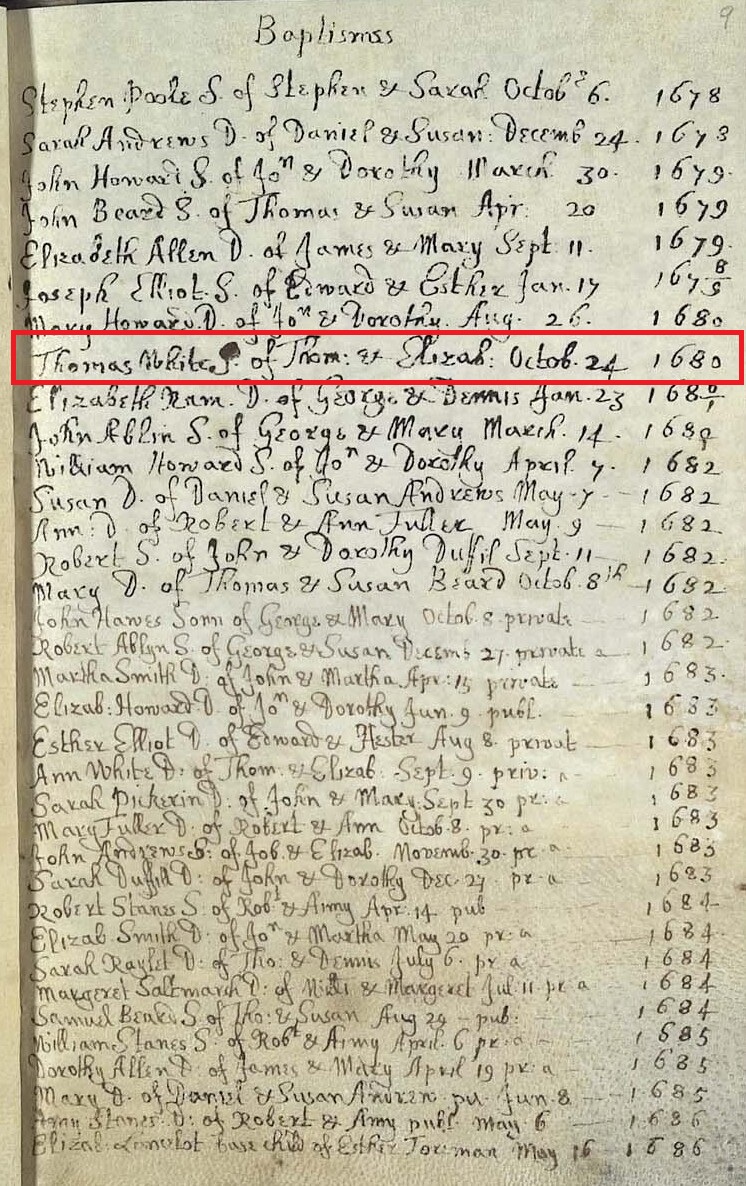 9
Baptismes
Stephen Poole S. of Stephen & Sarah Octobr 6. 1678
Sarah Andrews D. of Daniel & Susan: Decemb 24. 1678
John Howard S. of Jon & Dorothy March 30. 1679.
John Beard S. of Thomas & Susan Apr. 20 1679
Elizabeth Allen D. of James & Mary Sept. 11. 1679.
Joseph Elliot. S. of Edward & Esther Jan. 17 167 8/9
Mary Howard. D. of Jon & Dorothy. Aug. 26. 1680
Thomas White S. of Thom: & Elizab: Octob. 24 1680
Elizabeth Ram. D. of George & Dennis Jan. 23 168 0/1
John Ablin S. of George & Mary March. 14. 168
William Howard S. of Jon & Dorothy April 7. 1682
Susan D. of Daniel & Susan Andrews May 7 1682
Ann: D. of Robert & Ann Fuller May. 9 1682
Robert S. of John & Dorothy Duffil Sept. 11 1682.
Mary D. of Thomas & Susan Beard Octob. 8th 1682.
John Hawes Sonn of George & Mary Octob. 8. private 1682
Robert Ablyn S. of George & Susan Decemb 27. private a 1682.
Martha Smith D: of John & Martha Apr: 15 private 1683.
Elizab: Howard. D. of Jon & Dorothy Jun. 9 publ. 1683
Esther Elliot D. of Edward & Hester Aug 8. privat 1683
Ann White D: of Thom. & Elizab. Sept. 9. priv: a 1683
Sarah Pickerin D. of John & Mary. Sept 30 pr: a 1683
Mary Fuller D: of Robert & Ann Octob. 8. pr: a 1683
John Andrews S: of Job. & Elizab. Novemb. 30. pr. a 1683
Sarah Duffill D: of John & Dorothy Dec. 27. pr. a 1683
Robert Stanes S: of Robt & Aimy Apr. 14 pub 1684
Elizab Smith D: of Jon & Martha May 20 pr: a 1684.
Sarah Raylet D: of Tho: & Dennis July 6. pr a 1684
Margeret Saltmarch D: of & Margeret Jul 11 pr a 1684
Samuel Beard S. of Tho: & Susan Aug 29 pub: 1684
William Stanes S. of Robt & Aimy April. 6 pr. a 1685
Dorothy Allen D: of James & Mary April 19 pr: a 1685
Mary D. of Daniel & Susan Andrew pu Jun. 8 1685
Amy Stanes D: of Robert & Amy publ. May 6 1686
Elizab: Lancelot base child of Esther May 16 1686